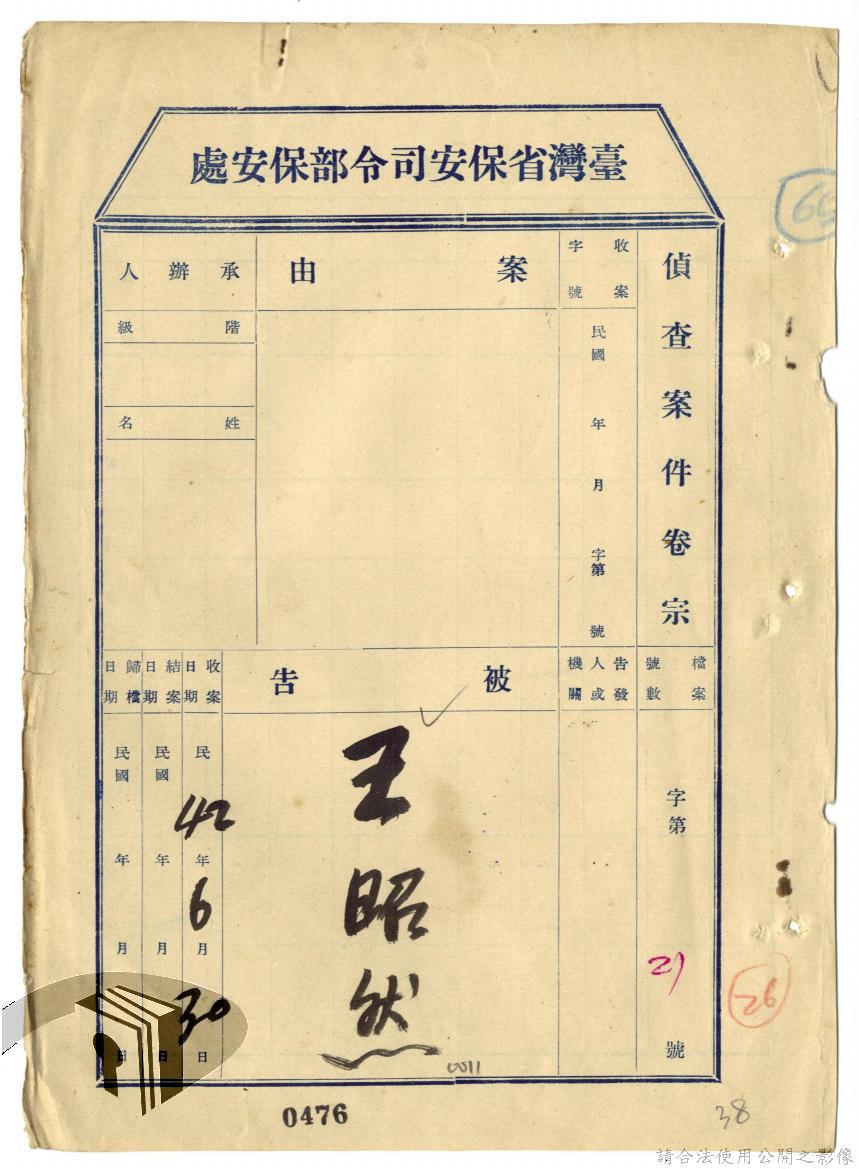 臺灣省保安司令部保安處
偵查案件卷宗
檔案號數
字第21號
收案字號
民國 年 月 字第 號
告發人或機關
案由
被告
王昭然
承辦人
階級
姓名
收案日期
民 42年6月30日
結案日期
民國 年 月 日
歸檔日期
民國 年 月 日
0011
0476
38
26
請合法使用公開之影像